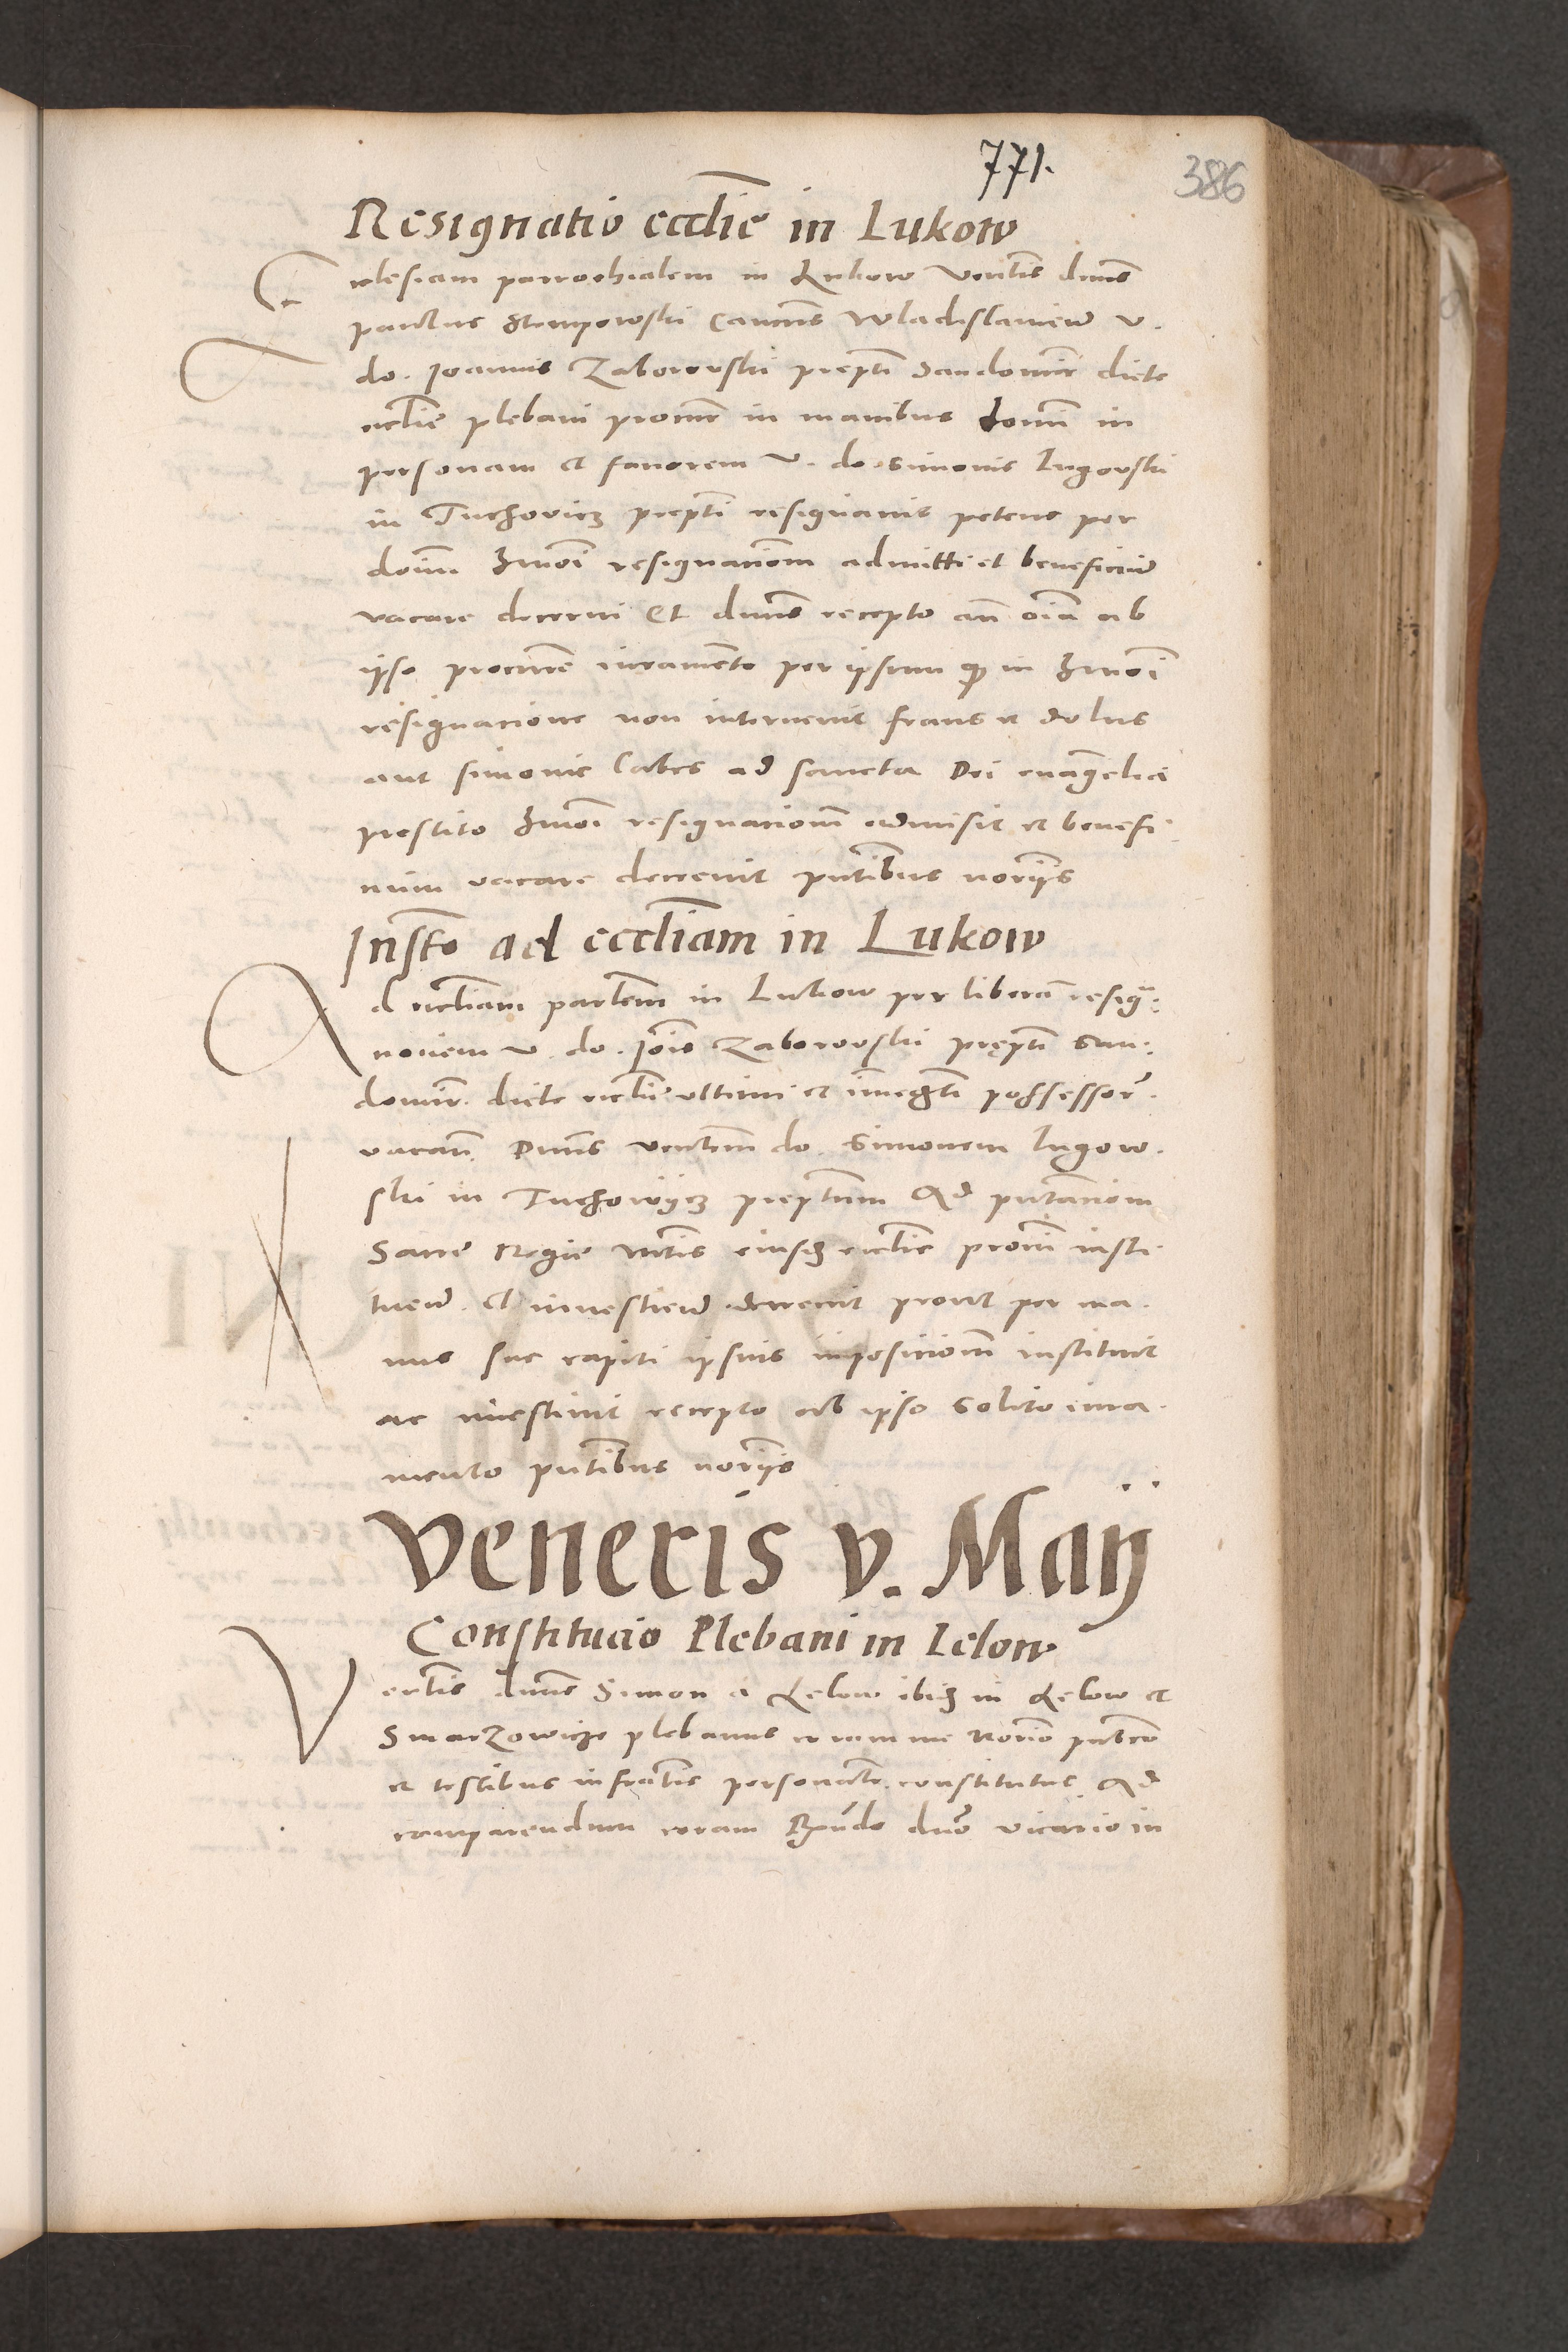 771.
386
Resignatio eccl̄ie in Lukow
Ecclesiam parrochialem in Lukow Venlis dnūs
paulus Stempowski Canonūs Wladislavien̄ v.
do. Joannis Zaborowski prepti Sandomir̄ dicte
eccl̄ie plebani procur̄ in manibus domī in
personam et favorem v. do. Simonis Lugowski
in Tuchovicz prepti resignavit petens per
domī hmōi resignacionem admitti et beneficiū
vacare decerni Et dnūs recepto an̄ oīa ab
ipso procure iuramento per ipsum in hmōi
resignacione non intervenit fraus et dolus
aut simonie labes ad sancta Dei evangelia
prestito hmōi resignacionem admisit et benefi-
cium vacare decrevit pn̄tibus notrijs
Insto ad eccl̄iam in Lukow
Ad eccl̄iam parlem in Lukow per liberā resig-
nacionem v. do. Joīs Zaborowski prepti San-
domir̄. dicte eccl̄ie ultimi et īmediti possessor̄.
vacan̄. Dnūs venlem do. Simonem Lugow-
ski in Tuchowijcz preptum Ad pn̄tacionem
Sacre Regie Mtis eiusdē eccl̄ie pronī insti-
tuend̄. Et investiend̄ decrevit prout per ma-
nus sue capiti ipsius imposicionem instituit
ac investivit recepto ab ipso solito iura-
mento pn̄tibus notrijs
Veneris v. Maij
Constitucio Plebani in Lelow
Venlis dnūs Simon a Lelow ibidē in Lelow et
Smarzowicze plebanus coram me Notrio publco
et testibus infratis personalr constitutus. Ad
comparendum coram Rndo dnō vicario in